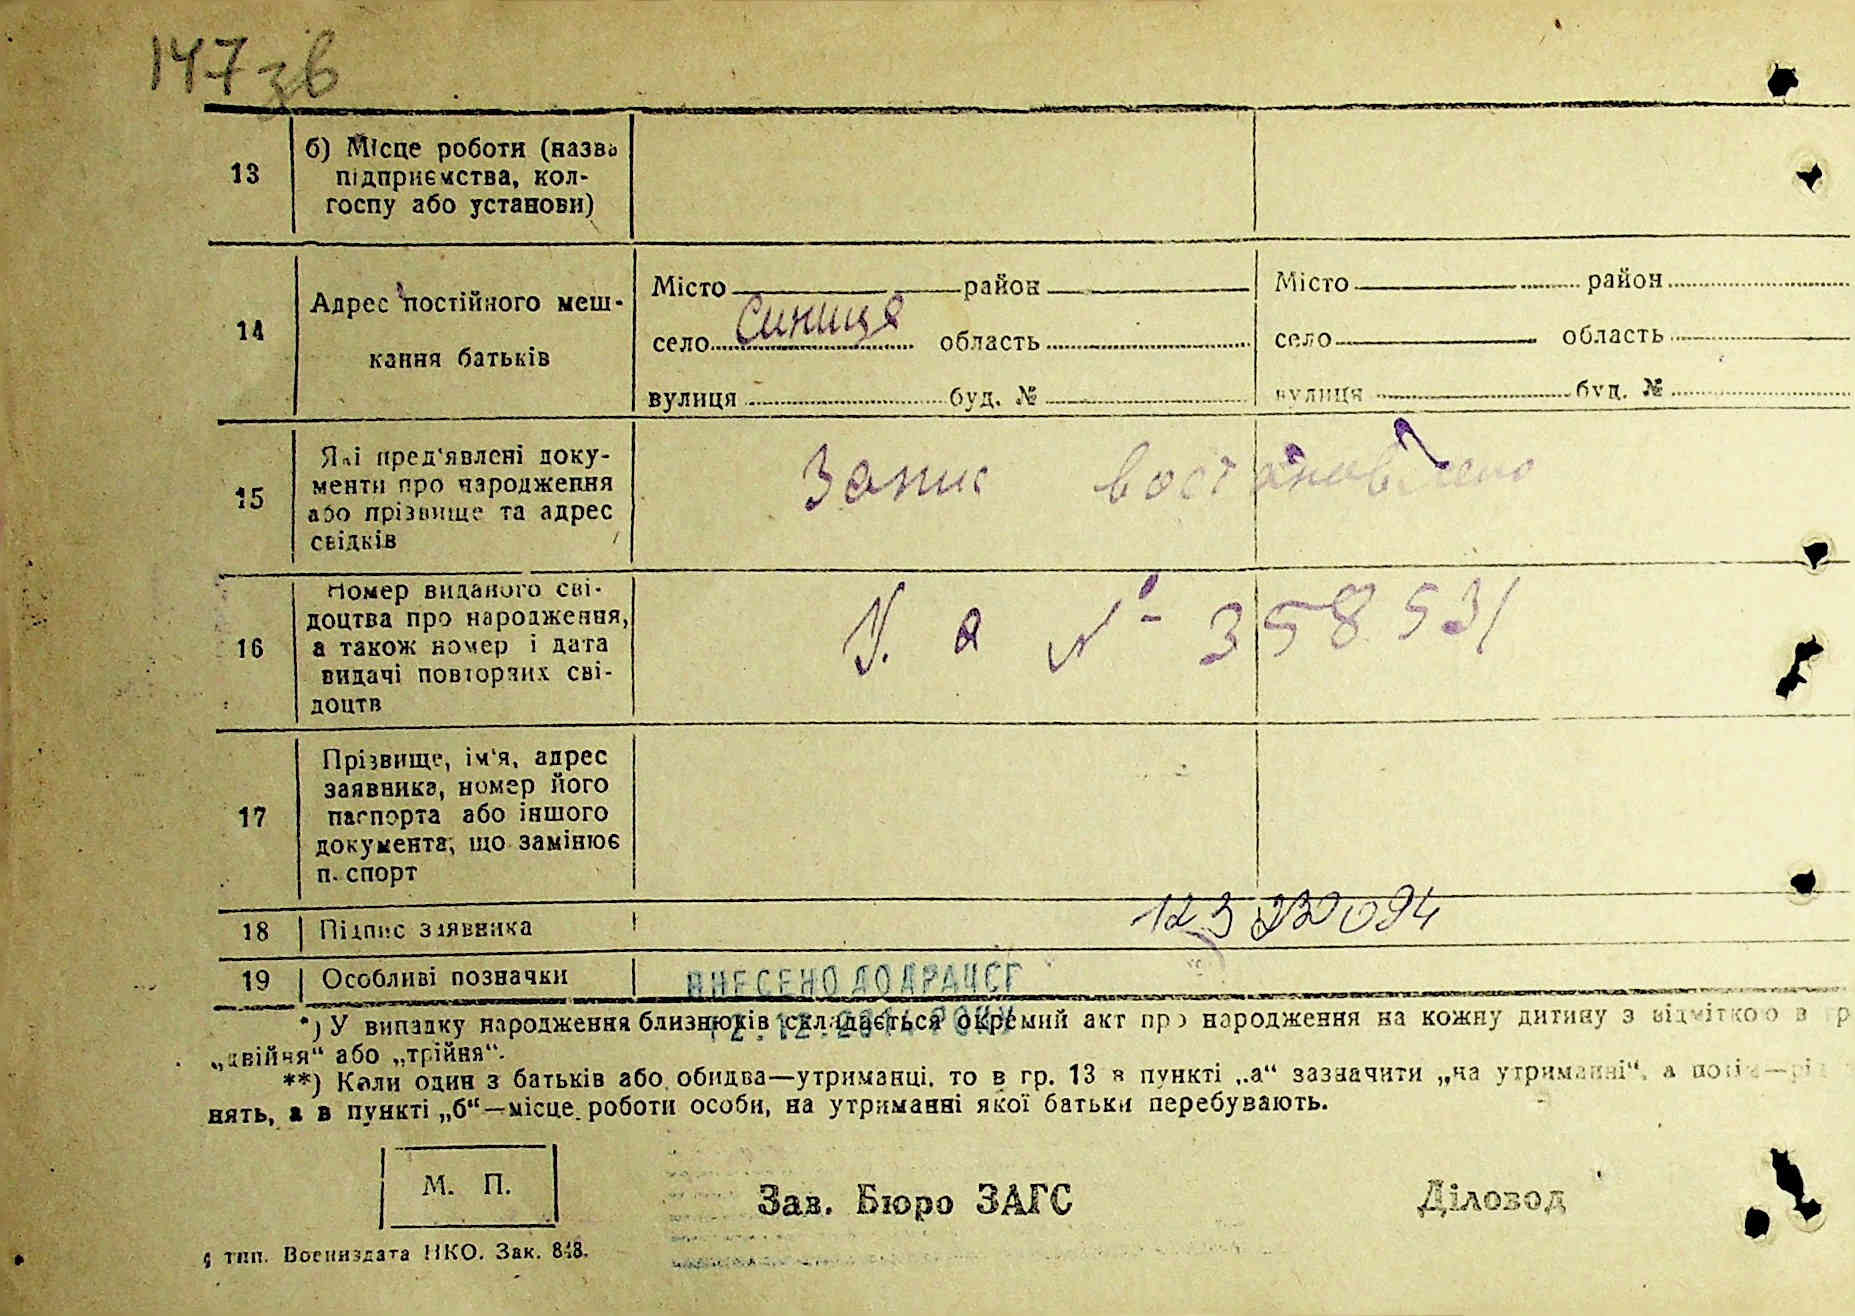 147 зв
13
б) Місце роботи (назва
підприємства, кол-
госпу або установи)
14
Адрес постійного меш-
кання батьків
Місто район
село Синиця область
вулиця буд. №
Місто район
село область
вулиця буд. №
15
Які пред'явлені доку-
менти про народження
або прізвище та адрес
свідків
Запис востановлено
16
Номер виданого сві-
доцтва про народження,
а також номер і дата
видачі повторних сві-
доцтв
У. а № 358531
17
Прізвище, ім'я, адрес
заявника, номер його
паспорта або іншого
документа, що замінює
п. спорт
18
Підпис заявника
19
Особливі позначки
ВНЕСЕНО ДО ДРАЦСГ
*) У випадку народження близнюків складається окремий акт про народження на кожну дитину з відміткою в гр
„двійня“ або „трійня“.
**) Коли один з батьків або обидва—утриманці, то в гр. 13 в пункті „а“ зазначити „на утриманні“, а
нять, а в пункті „б“—місце роботи особи, на утриманні якої батьки перебувають.
М. П.
Зав. Бюро ЗАГС
Діловод
тип. Воениздата НКО. Зак. 848.